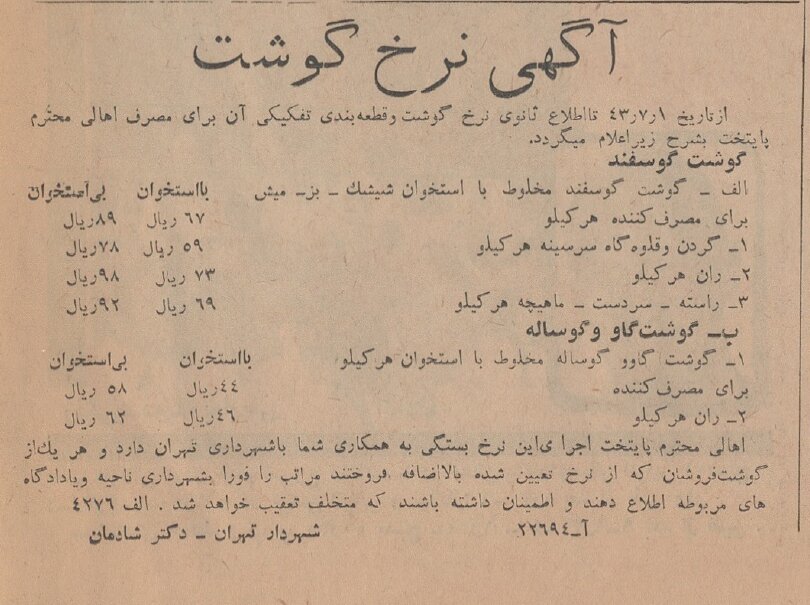 آگهی نرخ گوشت
از تاریخ ۴۳ر۷ر۱ تا اطلاع ثانوی نرخ گوشت و قطعه‌بندی تفکیکی آن برای مصرف اهالی محترم
پایتخت بشرح زیر اعلام میگردد.
گوشت گوسفند
الف ـ گوشت گوسفند مخلوط با استخوان شیشك ـ بز ـ میش بااستخوان بی‌استخوان
برای مصرف‌کننده هرکیلو ۶۷ ریال ۸۹ریال
۱ـ گردن وقلوه‌گاه سرسینه هرکیلو ۵۹ ریال ۷۸ریال
۲ـ ران هرکیلو ۷۳ ریال ۹۸ریال
۳ـ راسته ـ سردست ـ ماهیچه هرکیلو ۶۹ ریال ۹۲ریال
ب ـ گوشت‌گاو وگوساله
۱ـ گوشت گاوو گوساله مخلوط با استخوان هرکیلو بااستخوان بی‌استخوان
برای مصرف‌کننده ۴۴ریال ۵۸ ریال
۲ـ ران هرکیلو ۴۶ریال ۶۲ ریال
اهالی محترم پایتخت اجرا ی‌این نرخ بستگی به همکاری شما باشهرداری تهران دارد و هر یك‌از
گوشت‌فروشان که از نرخ تعیین شده بالااضافه فروختند مراتب را فورا بشهرداری ناحیه ویادادگاه
های مربوطه اطلاع دهند و اطمینان داشته باشند که متخلف تعقیب خواهد شد . الف ۴۲۷۶
آـ۲۲۶۹۴ شهردار تهران ـ دکتر شادمان